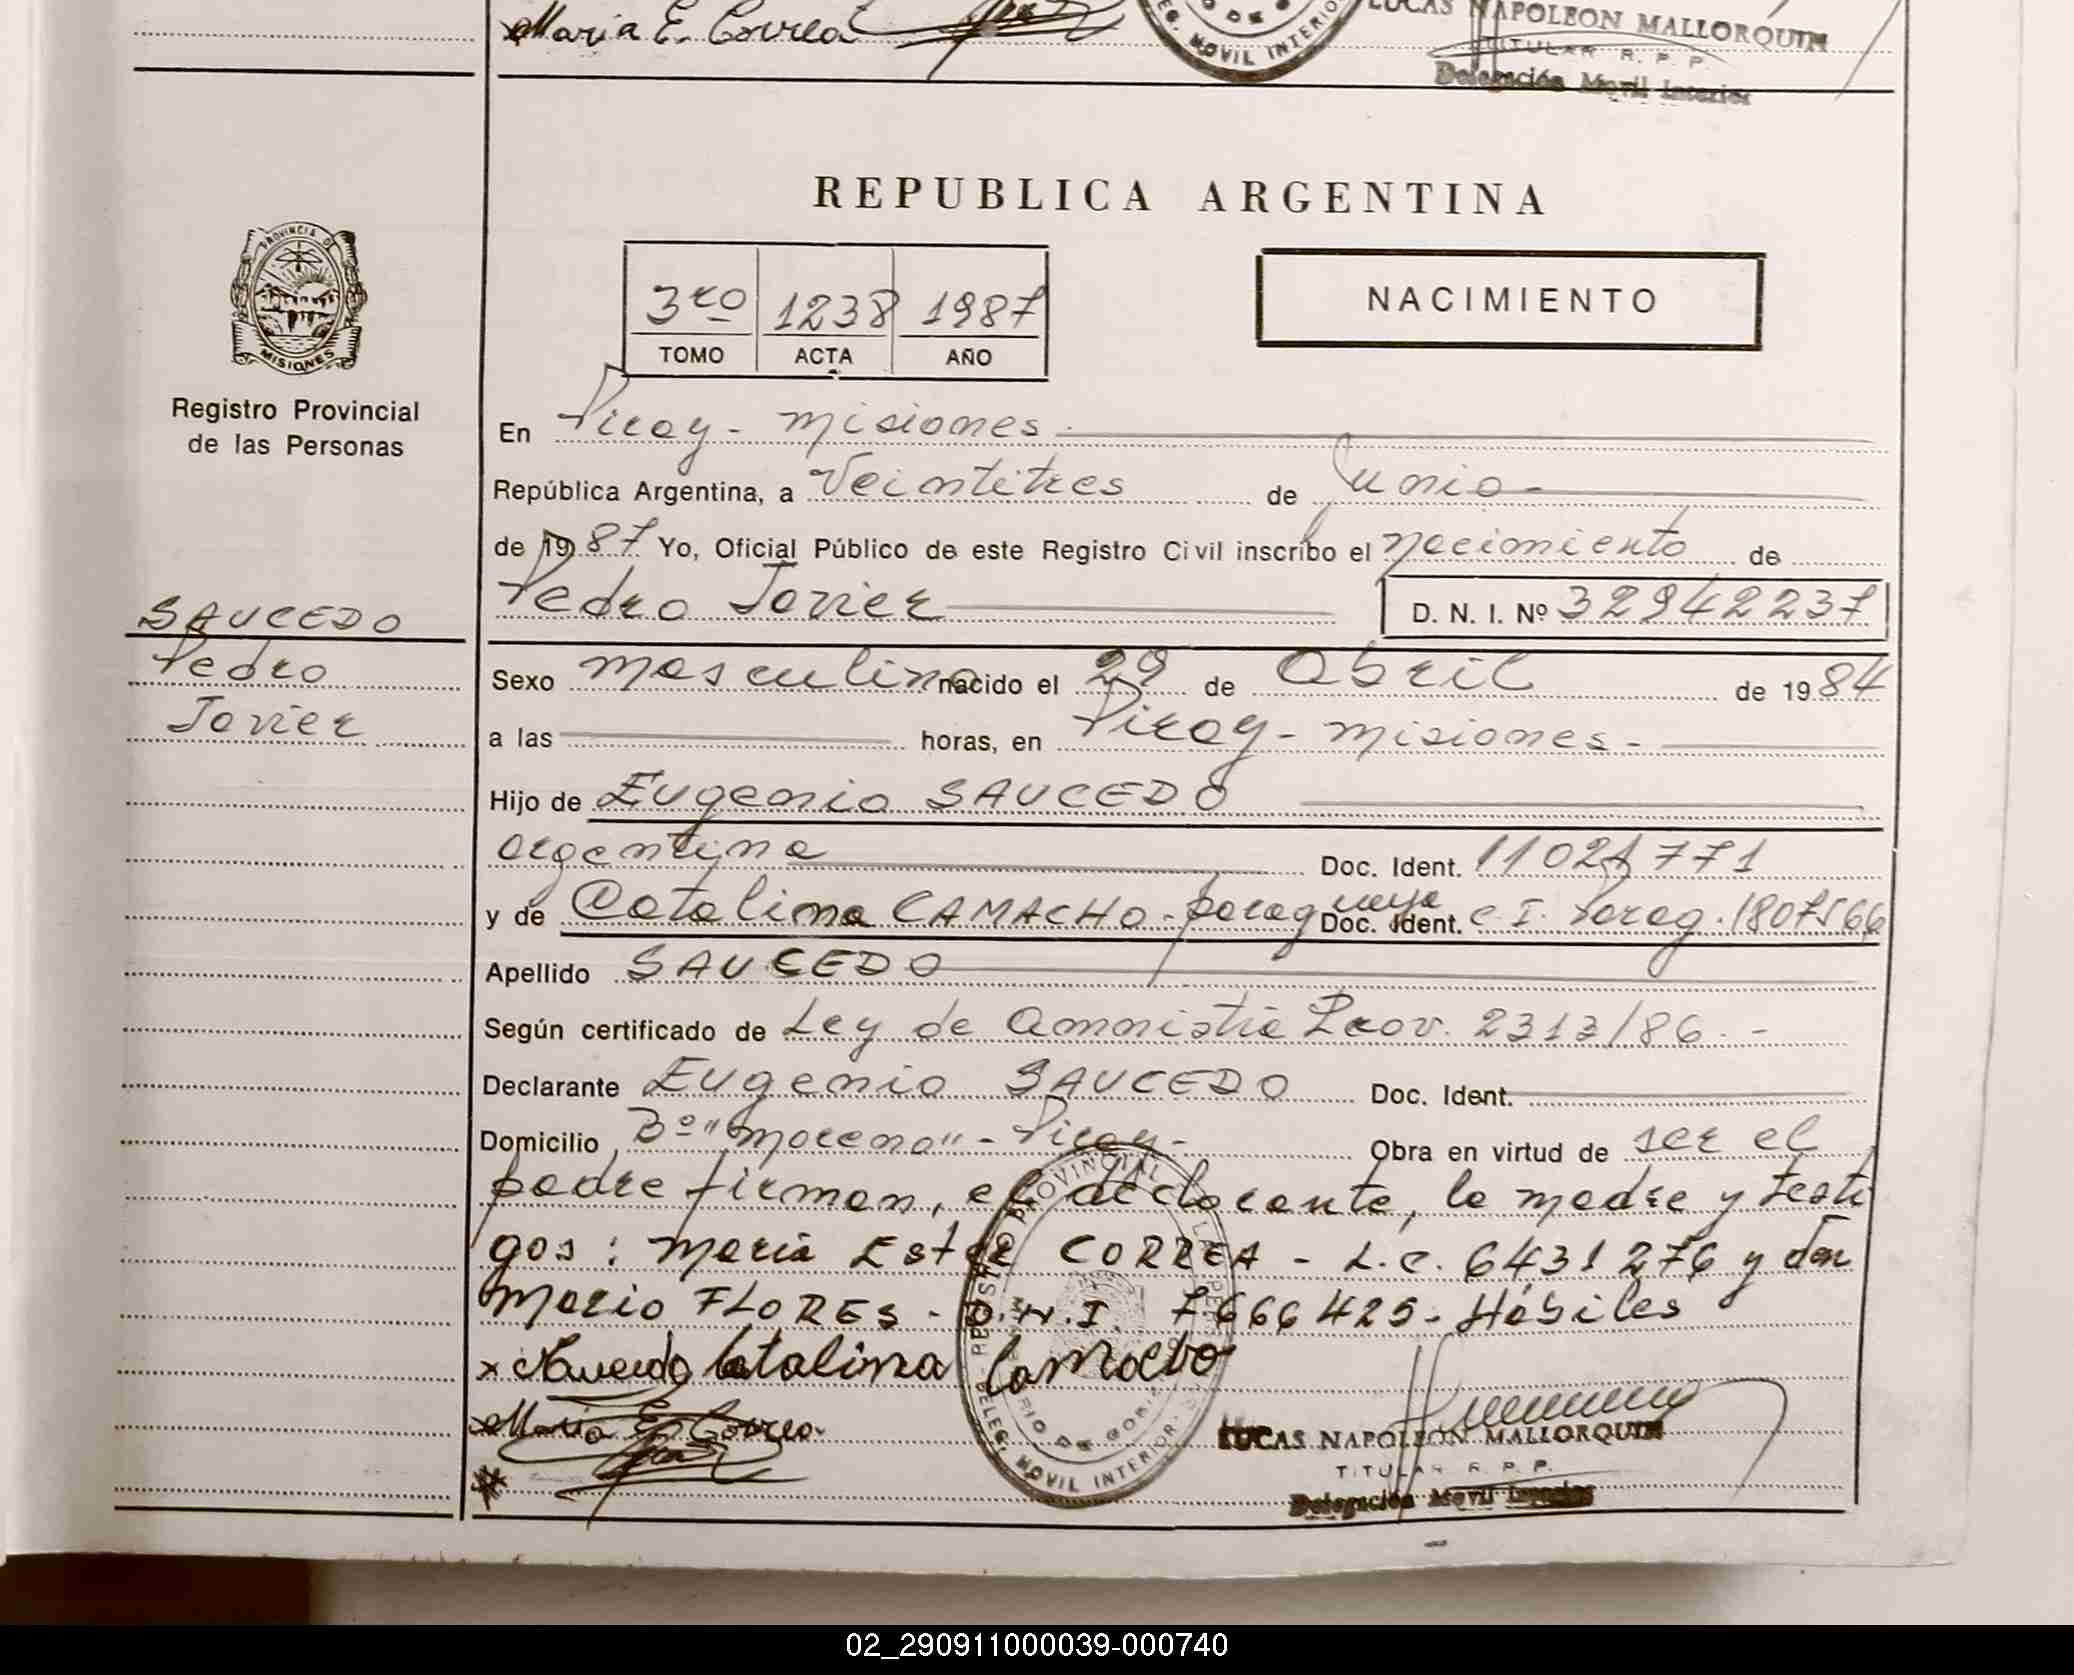 Maria E. Correa
MOVIL INTERIOR
LUCAS NAPOLEON MALLORQUIN
TITULAR R. P. P.
Delegación Movil Interior
REPUBLICA ARGENTINA
PROVINCIA DE
MISIONES
3ro 1238 1987
TOMO ACTA AÑO
NACIMIENTO
Registro Provincial
de las Personas
En Piray - Misiones
República Argentina, a Veintitres de Junio
de 1987 Yo, Oficial Público de este Registro Civil inscribo el nacimiento de
Pedro Javier D. N. I. Nº 32942237
SAUCEDO
Pedro
Javier
Sexo masculino nacido el 29 de Abril de 1984
a las horas, en Piray - Misiones -
Hijo de Eugenio SAUCEDO
argentina Doc. Ident. 11021771
y de Catalina CAMACHO - paraguaya Doc. Ident. C. I. Parag. 1807566
Apellido SAUCEDO
Según certificado de Ley de Amnistia Prov. 2313/86 -
Declarante Eugenio SAUCEDO Doc. Ident.
Domicilio Bº "Moreno" - Piray - Obra en virtud de ser el
padre firman, el declarante, la madre y testi
gos: Maria Ester CORREA - L.C. 6431276 y don
Mario FLORES - D.N.I. 7666425 - Hábiles
x Saucedo Catalina Camacho
Maria E. Correa
LUCAS NAPOLEON MALLORQUIN
TITULAR R. P. P.
Delegación Movil Interior
REGISTRO PROVINCIAL DE LAS PERSONAS
DELEG. MOVIL INTERIOR
02_290911000039-000740